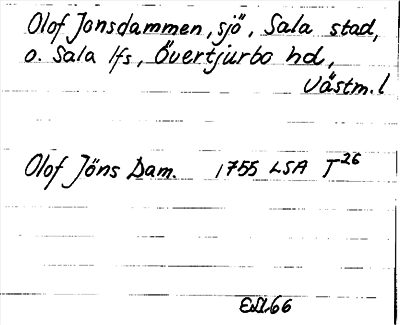 Olof Jonsdammen, sjö, Sala stad,
o. Sala lfs, Övertjurbo hd,
Västm. l
Olof Jöns Dam. 1755 LSA T26